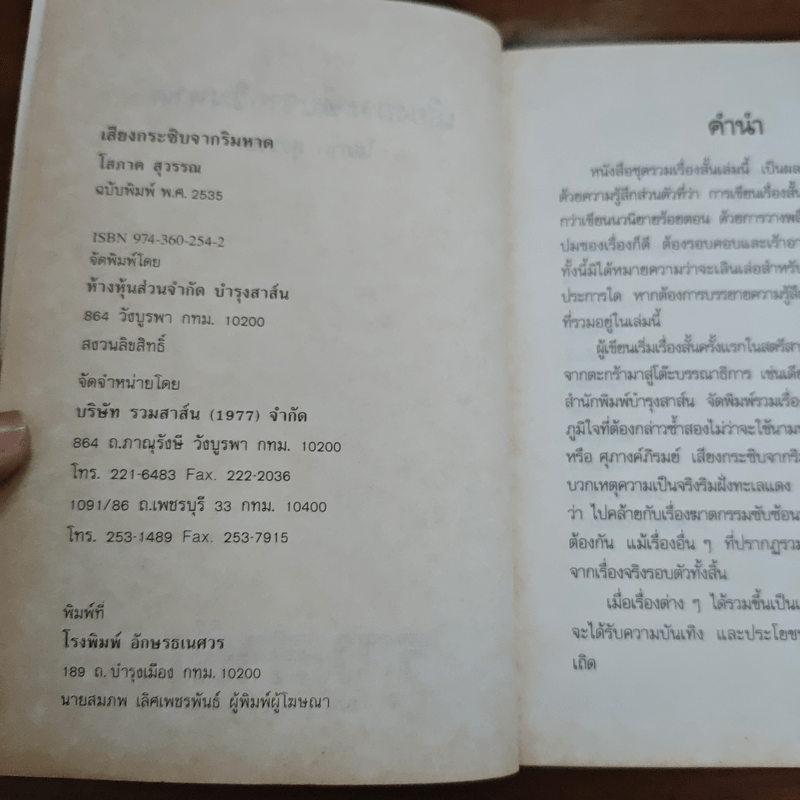 เสียงกระซิบจากริมหาด
โสภาค สุวรรณ
ฉบับพิมพ์ พ.ศ. 2535
ISBN 974-360-254-2
จัดพิมพ์โดย
ห้างหุ้นส่วนจำกัด บำรุงสาส์น
864 วังบูรพา กทม. 10200
สงวนลิขสิทธิ์
จัดจำหน่ายโดย
บริษัท รวมสาส์น (1977) จำกัด
864 ถ.ภาณุรังษี วังบูรพา กทม. 10200
โทร. 221-6483 Fax. 222-2036
1091/86 ถ.เพชรบุรี 33 กทม. 10400
โทร. 253-1489 Fax. 253-7915
พิมพ์ที่
โรงพิมพ์ อักษรธเนศวร
189 ถ.บำรุงเมือง กทม. 10200
นายสมภพ เลิศเพชรพันธ์ ผู้พิมพ์ผู้โฆษณา
คำนำ
หนังสือชุดรวมเรื่องสั้นเล่มนี้ เป็นผล
ด้วยความรู้สึกส่วนตัวที่ว่า การเขียนเรื่องสั้น
กว่าเขียนนวนิยายร้อยตอน ด้วยการวางพล
ปมของเรื่องก็ดี ต้องรอบคอบและเร้าอา
ทั้งนี้มิได้หมายความว่าจะเลินเล่อสำหรับ
ประการใด หากต้องการบรรยายความรู้สึก
ที่รวมอยู่ในเล่มนี้
ผู้เขียนเริ่มเรื่องสั้นครั้งแรกในสตรีสา
จากตะกร้ามาสู่โต๊ะบรรณาธิการ เช่นเดีย
สำนักพิมพ์บำรุงสาส์น จัดพิมพ์รวมเรื่อง
ภูมิใจที่ต้องกล่าวซ้ำสองไม่ว่าจะใช้นาม
หรือ ศุภางค์ภิรมย์ เสียงกระซิบจากริม
บวกเหตุความเป็นจริงริมฝั่งทะเลแดง
ว่า ไปคล้ายกับเรื่องฆาตกรรมซับซ้อน
ต้องกัน แม้เรื่องอื่น ๆ ที่ปรากฏรวม
จากเรื่องจริงรอบตัวทั้งสิ้น
เมื่อเรื่องต่าง ๆ ได้รวมขึ้นเป็นเ
จะได้รับความบันเทิง และประโยชน์
เถิด